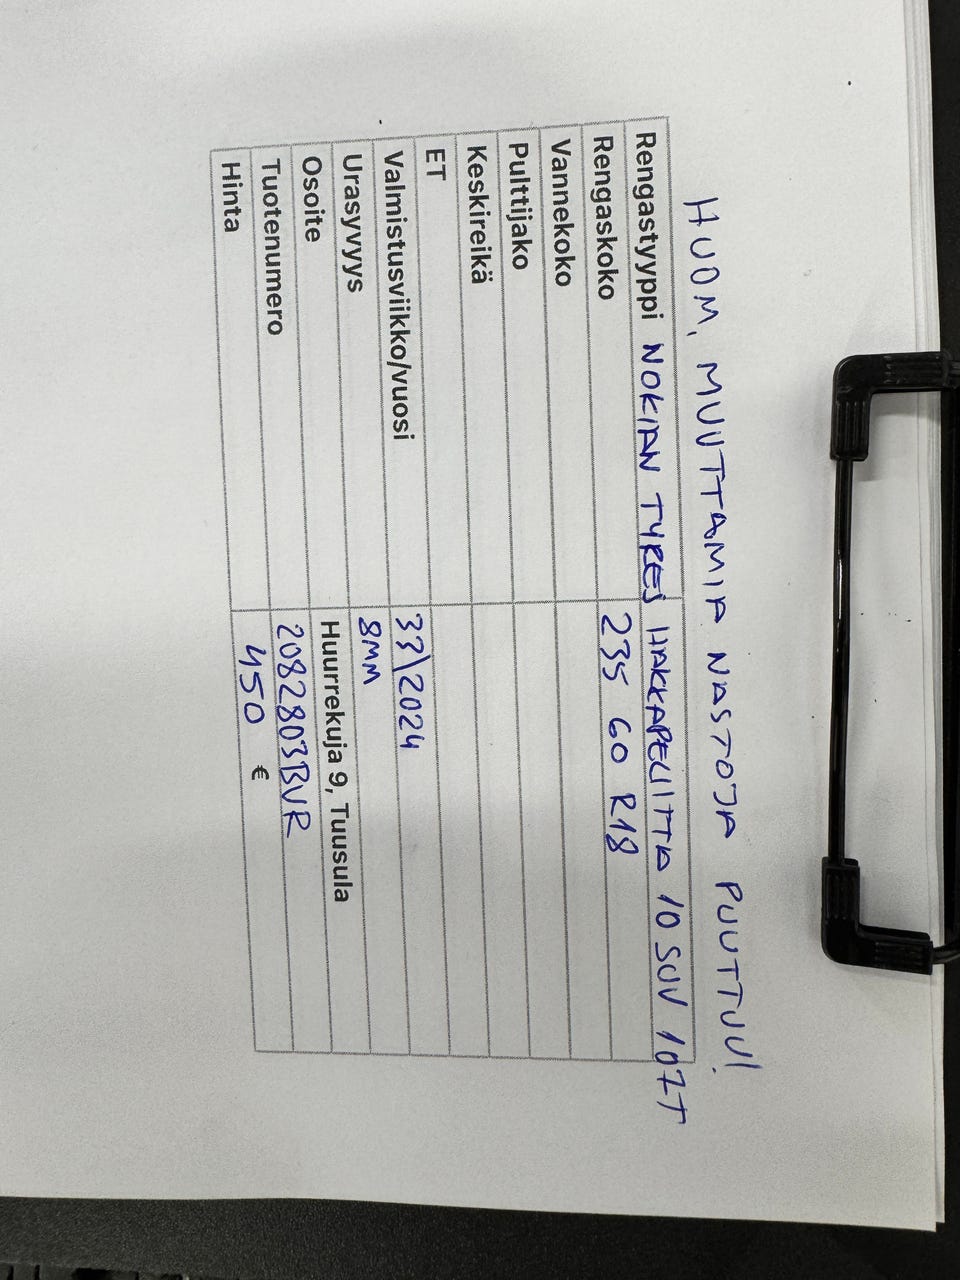 HUOM, MUUTTAMIA NASTOJA PUUTTUU!
Rengastyyppi NOKIAN TYRES HAKKAPELIITTA 10 SUV 107T
Rengaskoko 235 60 R18
Vannekoko
Pulttijako
Keskireikä
ET
Valmistusviikko/vuosi 33\2024
Urasyvyys 8MM
Osoite Huurrekuja 9, Tuusula
Tuotenumero 2082803BVR
Hinta 450 €